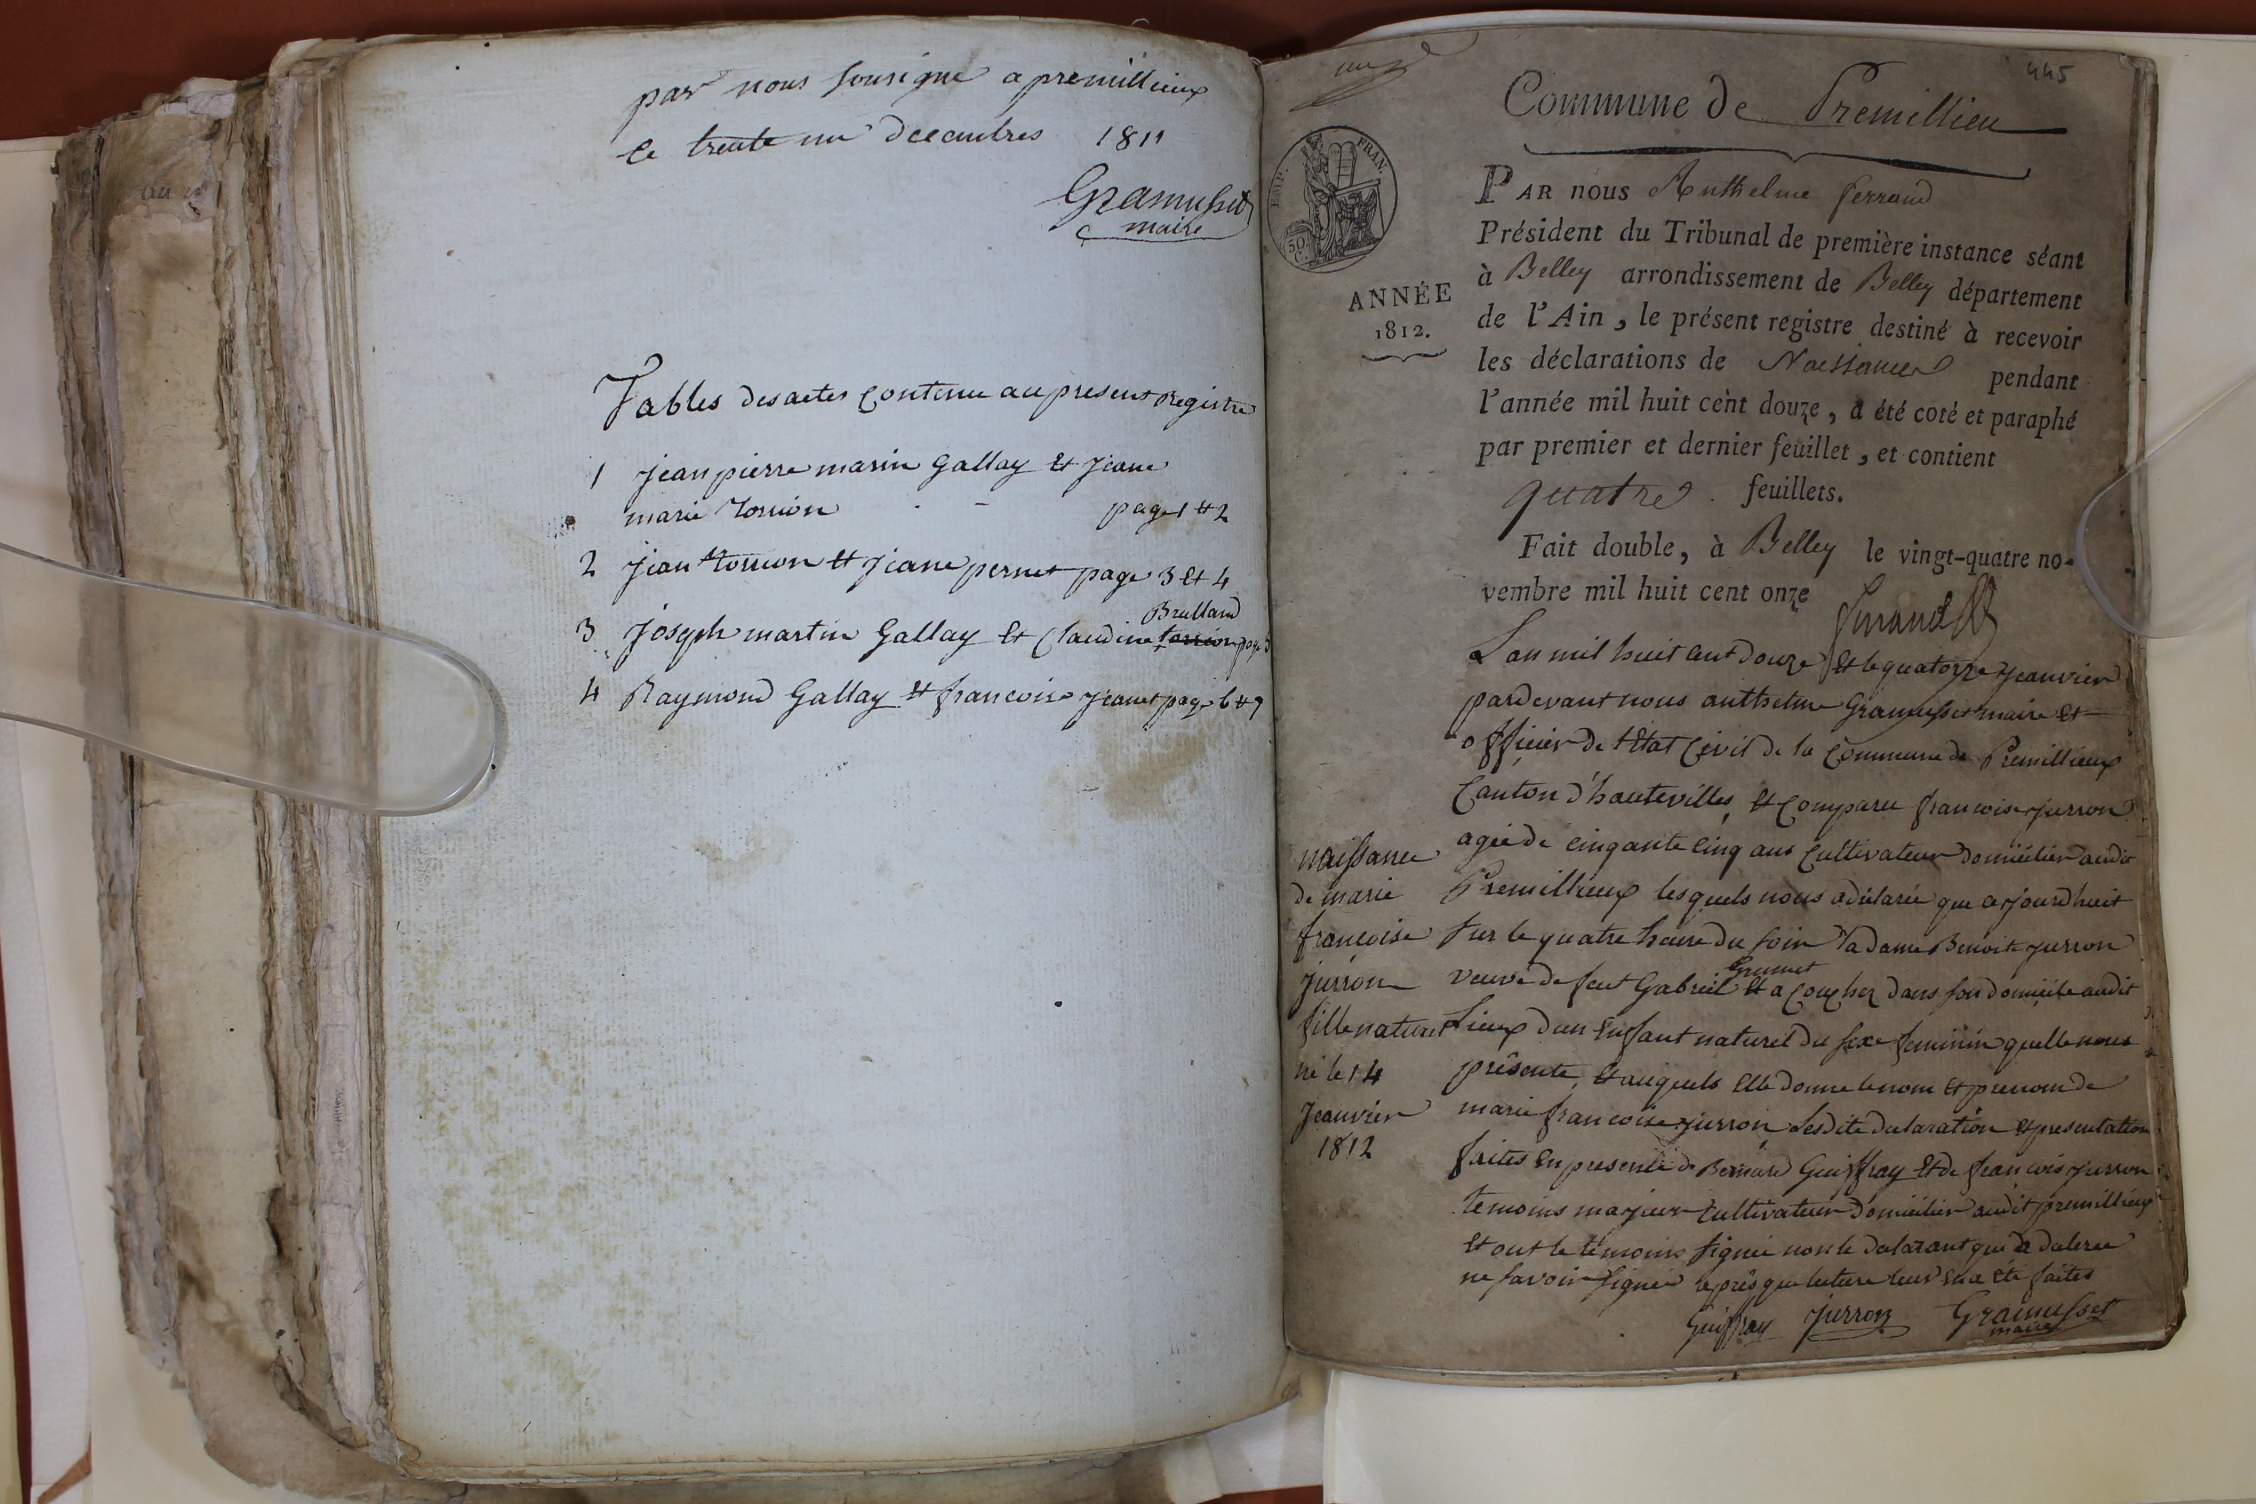 par nous sousigne a premillieux
le trente un decembres 1811
Gramusset
maire
Tables des actes contenu au present Registre
1 jean pierre marin Gallay et jeane
marie torrion - page 1 et 2
2 jean torrion et jeane pernet page 3 et 4
Brulland
3 joseph martin Gallay et Claudine torrion page 5
4 Raymond Gallay et francoise jeanet page 6 et 7
445
Commune de Premillieu
EMP. FRAN.
50 C.
ANNÉE
1812.
PAR nous Anthelme ferrand
Président du Tribunal de première instance séant
à Belley arrondissement de Belley département
de l'Ain, le présent registre destiné à recevoir
les déclarations de Naissances pendant
l'année mil huit cent douze, a été coté et paraphé
par premier et dernier feuillet, et contient
quatre feuillets.
Fait double, à Belley le vingt-quatre no-
vembre mil huit cent onze
L'an mil huit cent douze et le quatorze jeanvier
pardevant nous anthelme Gramusset maire et
officier de l'état Civil de la Commune de Premillieux
Canton d'hautevilles, et comparu francoise jurron
agée de cinqante cinq ans Cultivateur domicilier audit
Premillieux lesquels nous a déclarée que ce jourdhuit
sur le quatre heure du soir la dame Benoite jurron
Grumet
veuve de feut Gabriel et acoucher dans son domicile audit
Lieux d'un enfant naturel du sexe feminin quelle nous
présente, et auquels elle donne le nom et prenom de
marie francoise jurron Lesdite declaration et presentation
faites en presente de Bernard Guiffray et de francois jurron
temoins majeur Cultivateur domicilier audit premillieux
et ont le témoins signée non le dalarant qui a daleree
ne savoir signée aprés que lecture leur en a été faites
Guiffray jurron Gramusset
maire
naissance
de marie
françoise
jurron
fille naturel
né le 14
jeanvier
1812